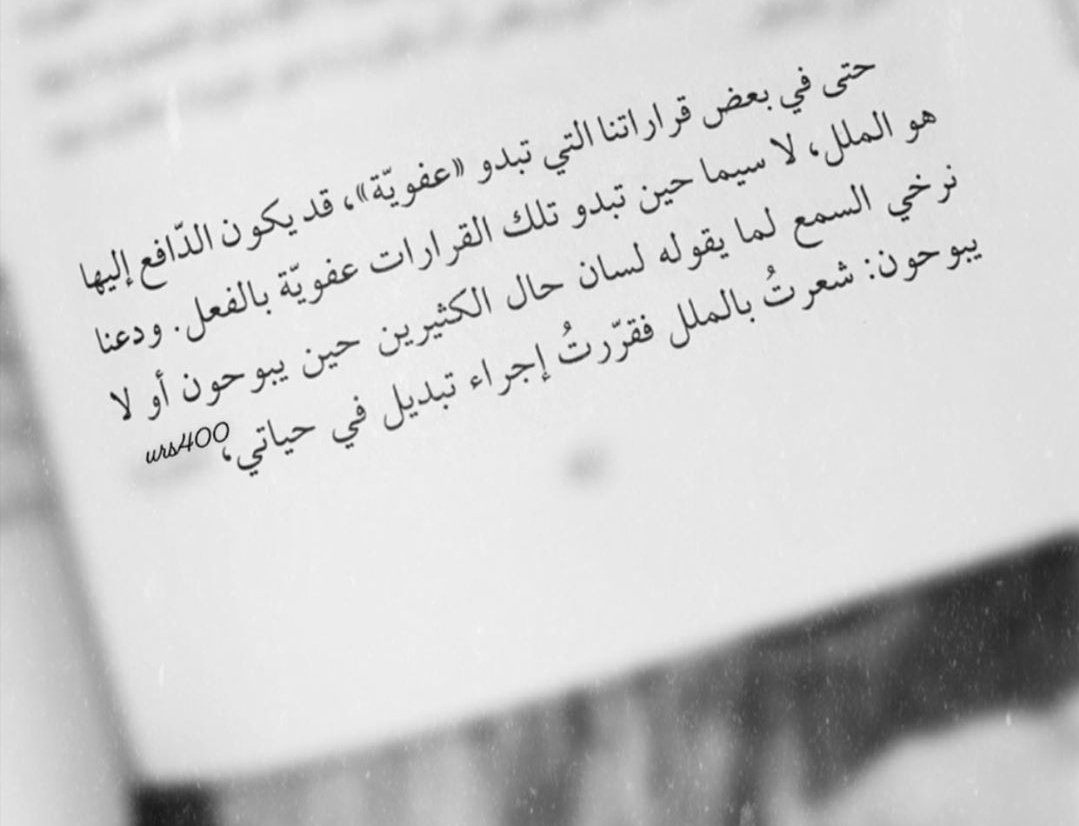 حتى في بعض قراراتنا التي تبدو «عفويّة»، قد يكون الدّافع إليها
هو الملل، لا سيما حين تبدو تلك القرارات عفويّة بالفعل. ودعنا
نرخي السمع لما يقوله لسان حال الكثيرين حين يبوحون أو لا
يبوحون: شعرتُ بالملل فقرّرتُ إجراء تبديل في حياتي،
urs400